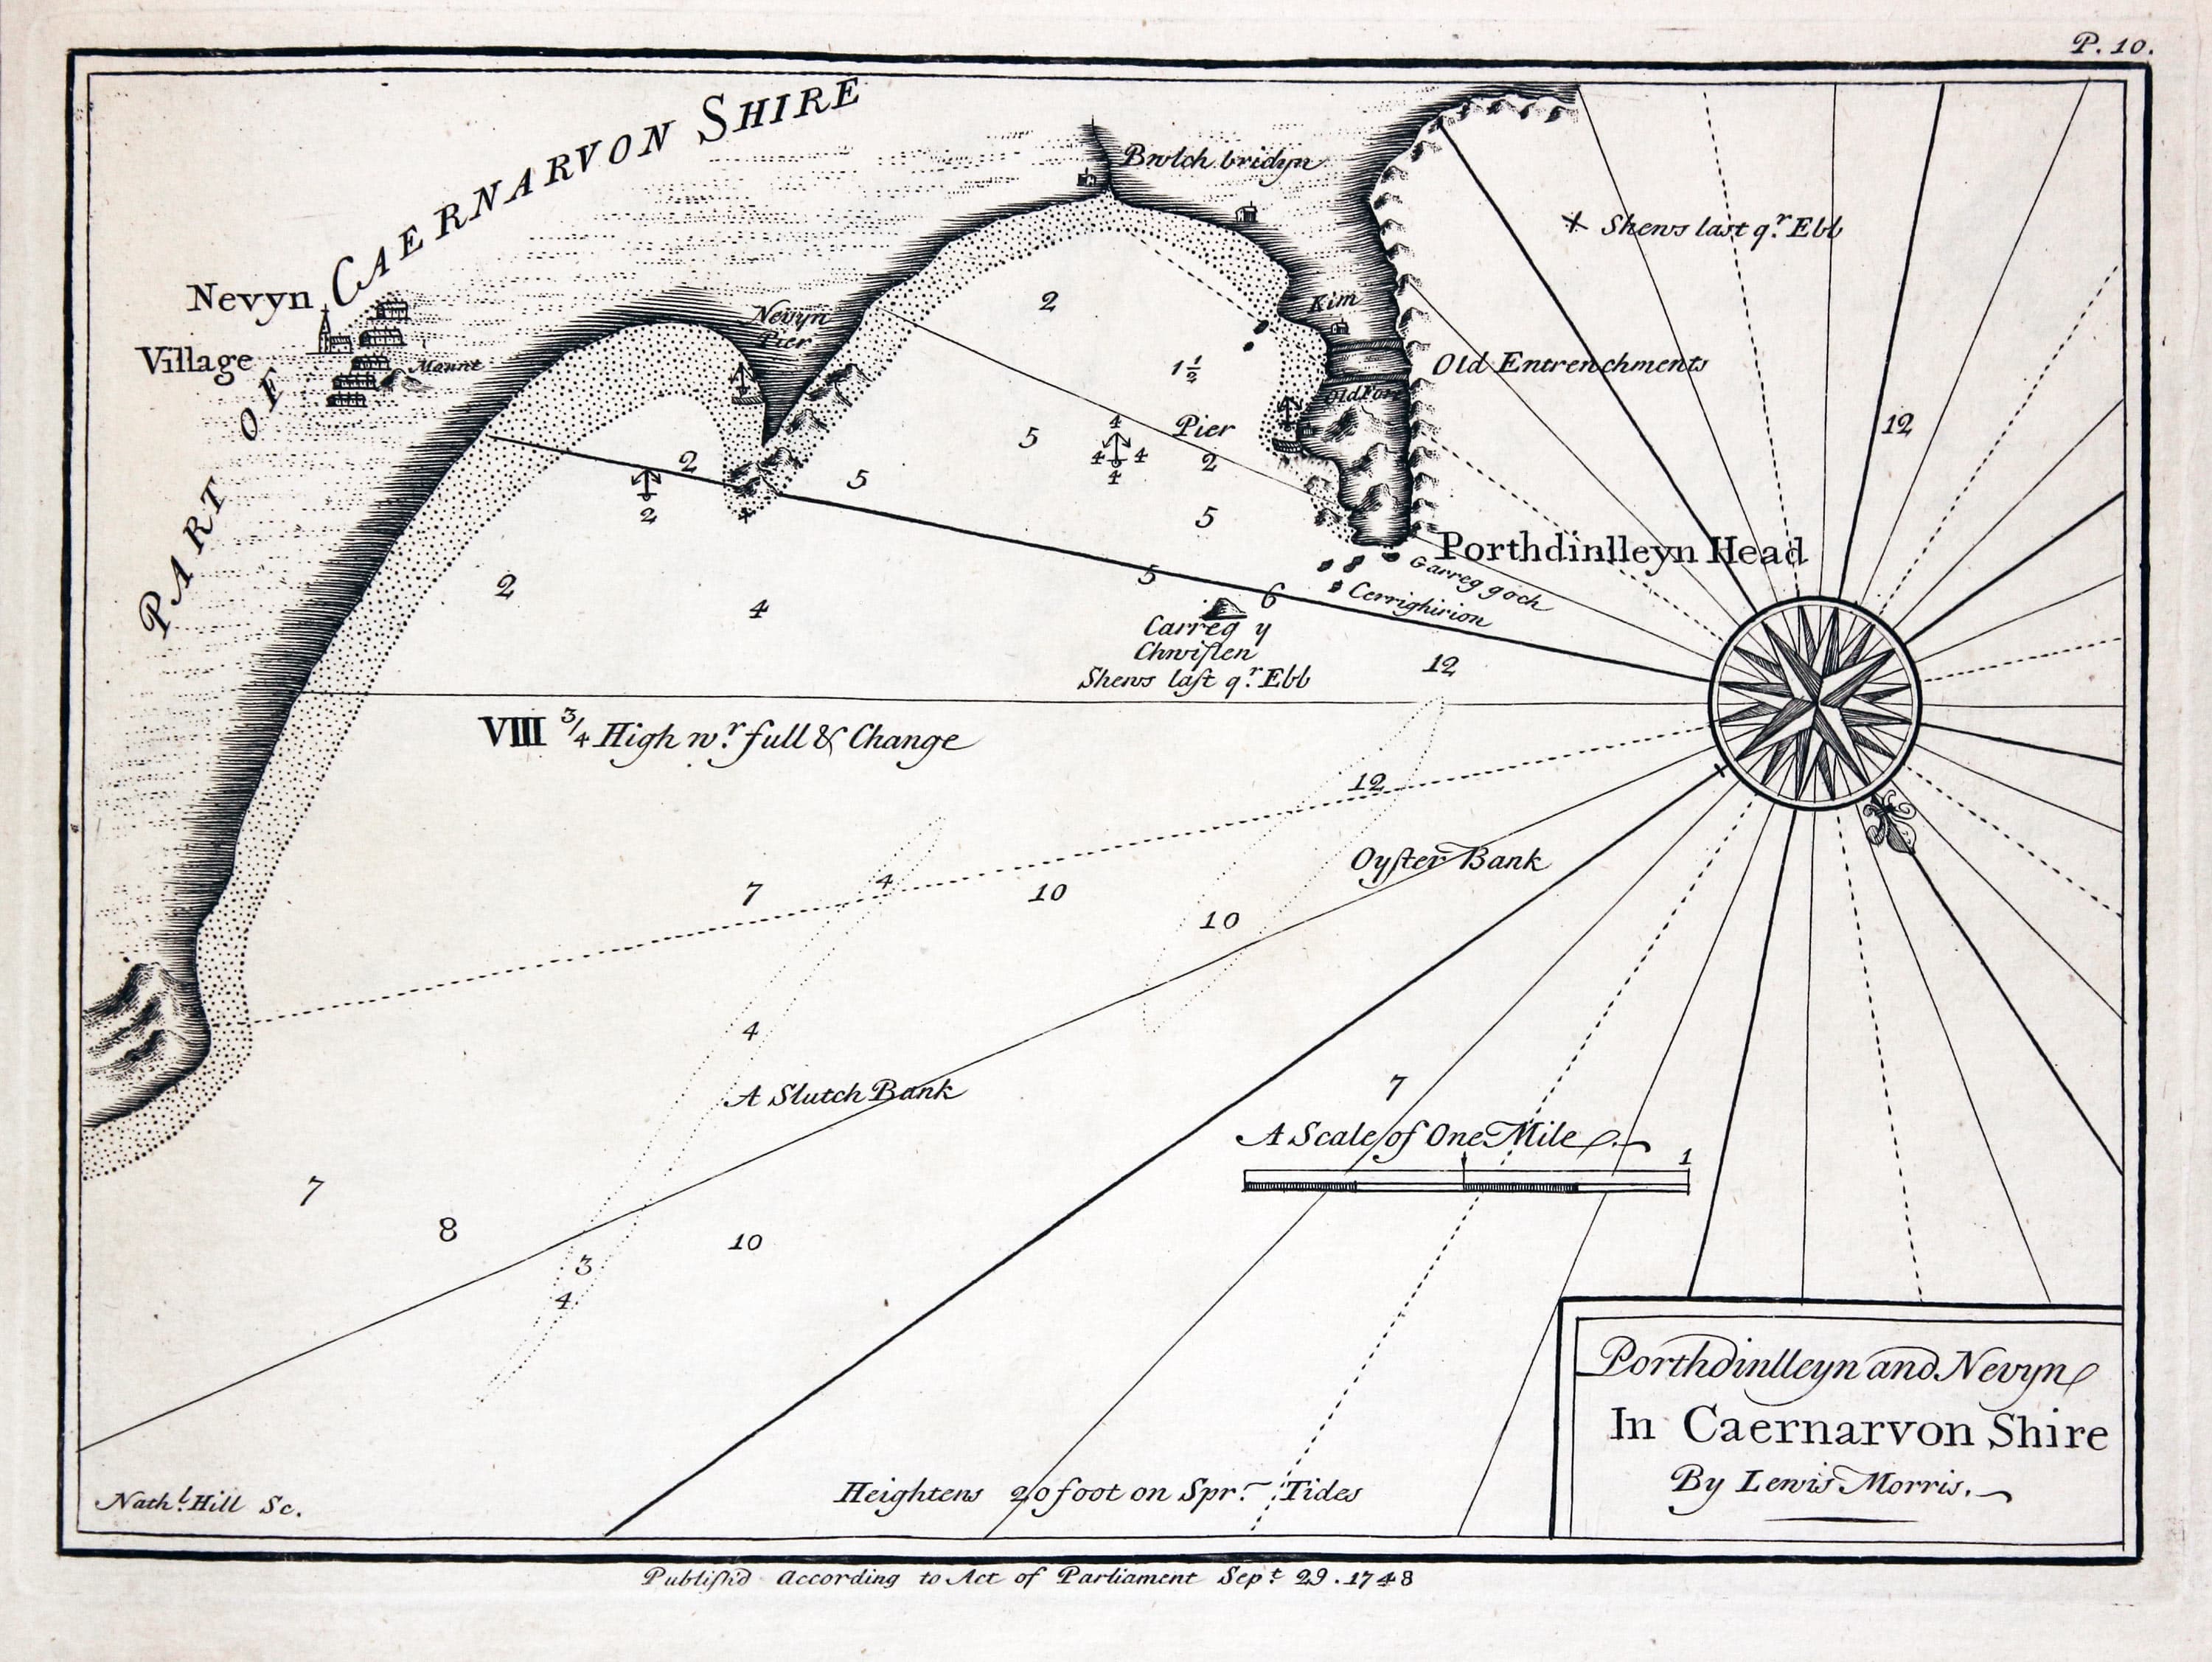 P. 10.
PART OF CAERNARVON SHIRE
Brolch bridyn
+ Shews last qr. Ebb
Nevyn
Village
Mount
Nevyn
Pier
Kim
2
1½
Old Entrenchments
Old Fort
12
Pier
4
4 4
4
5
2
2
5
2
5
Porthdinlleyn Head
Garreg goch
Cerrighirion
5
6
2
4
Carreg y
Chwiſlen
Shews laſt qr. Ebb
12
VIII ¾ High wr. full & Change
12
Oyſter Bank
7
4
10
10
4
A Slutch Bank
7
A Scale of One Mile
1
7
8
10
3
4
Porthdinlleyn and Nevyn
In Caernarvon Shire
By Lewis Morris.
Heightens 20 foot on Spr. Tides
Nathl. Hill Sc.
Publiſh'd According to Act of Parliament Sept. 29. 1748